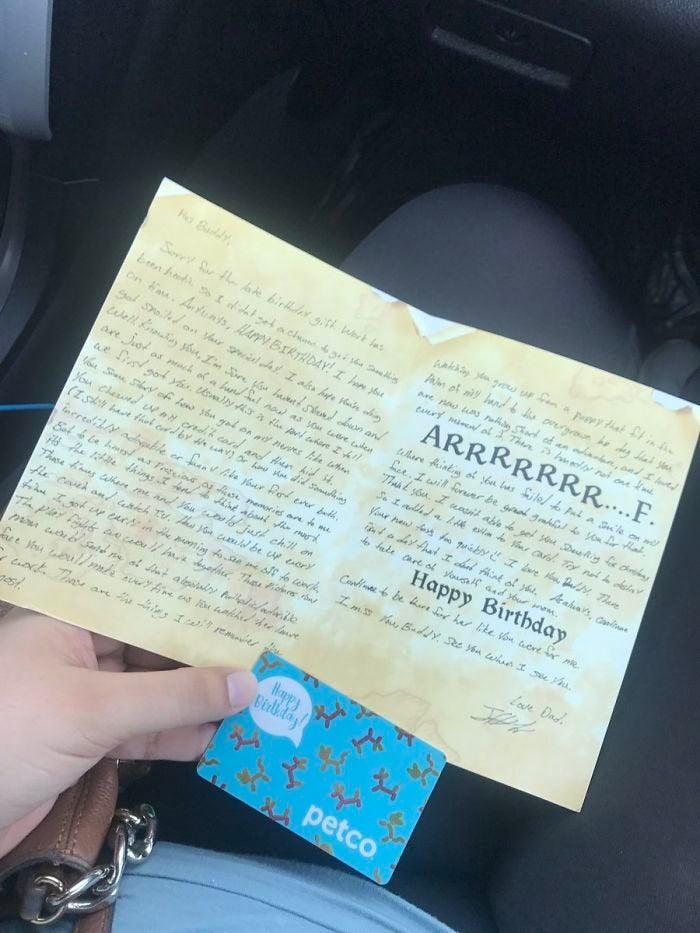 Hey Buddy,
Sorry for the late birthday gift. Work has
been hectic so I didnt get a chance to get you something
on time. Anyways, HAPPY BIRTHDAY! I hope you
got spoiled on your special day. I also hope you're okay
well. Knowing you, I'm sure you havent slowed down and
are just as much of a handful now as you were when
we first got you. Usually this is the part where I tell
you some story of how you got on my nerves like when
you chewed up my credit card and then hid it.
(I still have that card by the way) or how you did something
incredibly adorable or funny like your first ever bath.
But to be honest as precious as those memories are to me
its the little things I tend to think about the most.
Those times where me and you would just chill on
the couch and watch TV. How you would be up every
time I got up early in the morning to see me off to work.
The play fights we would have together. Those pictures your
mom would send me of that absolutely pathetic/adorable
face you would make every time as you watched me leave
for work. Those are the things I will remember the
most.
Watching you grow up from a puppy that fit in the
palm of my hand to the overgrown big dog that you
are now was nothing short of an adventure, and I loved
every moment of it. There is honestly not one time
ARRRRRRR....F.
where thinking of you has failed to put a smile on my
face. I will forever be greatful to you for that.
Thank you. I wasnt able to get you something for christmas
so I added a little extra to your card. Try not to destroy
your new toys too quickly!! I love you Buddy. There
isnt a day that I dont think of you. As always, continue
to take care of yourself and your mom.
Happy Birthday
Continue to be there for her like you were for me.
I miss you, Buddy. See you when I see you.
Love Dad,
Happy
Birthday!
petco